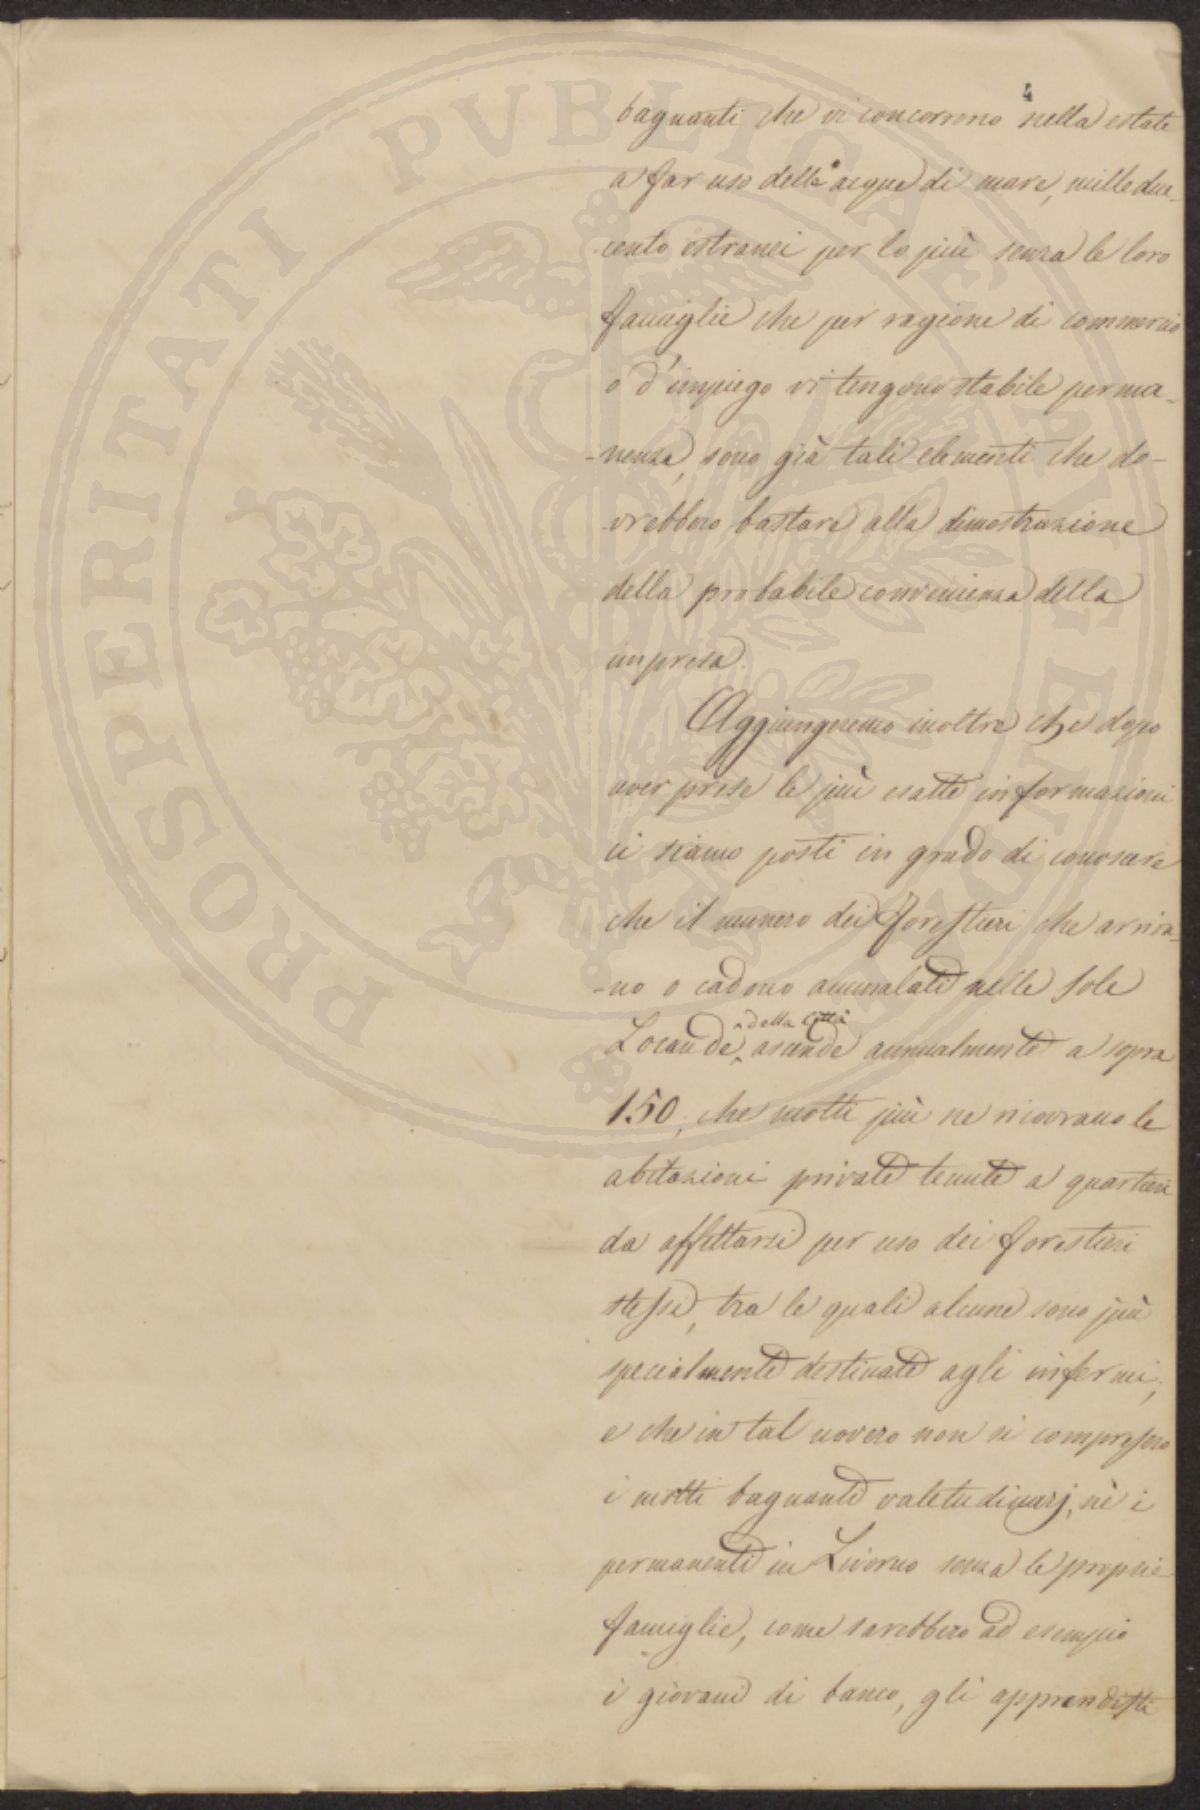 4
bagnanti che vi concorrono nella estate
a far uso delle acque di mare, mille due-
cento estranei per lo più senza le loro
famiglie che per ragione di commercio
o d'impiego vi tengono stabile perma-
-nenza, sono già tali elementi che do-
vrebbero bastare alla dimostrazione
della probabile convenienza della
impresa.
Aggiungeremo inoltre che dopo
aver prese le più esatte informazioni
ci siamo posti in grado di conoscere
che il numero dei forestieri che arriva-
-no o cadono ammalati nelle sole
della Città
Locande ascende annualmente a sopra
150, che molti più ne ricovrano le
abitazioni private tenute a quartieri
da affittarsi per uso dei forestieri
stessi, tra le quali alcune sono più
specialmente destinate agli infermi;
e che in tal novero non si compresero
i molti bagnanti valetudinarj, nè i
permanenti in Livorno senza le proprie
famiglie, come sarebbero ad esempio
i giovani di banco, gli apprendisti
PROSPERITATI PVBLICAE